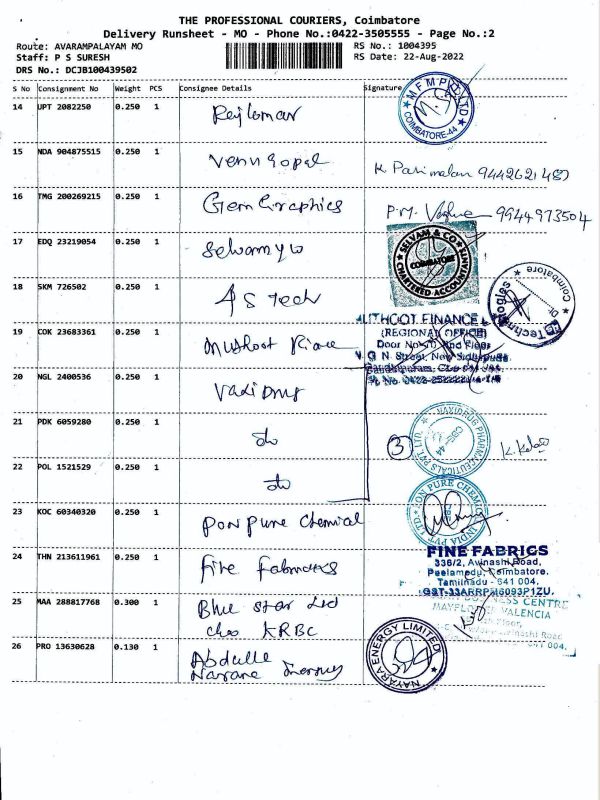 THE PROFESSIONAL COURIERS, Coimbatore
Delivery Runsheet - MO - Phone No.:0422-3505555 - Page No.:2
Route: AVARAMPALAYAM MO
RS No.: 1004395
Staff: P S SURESH
RS Date: 22-Aug-2022
DRS No.: DCJB100439502
S No Consignment No Weight PCS Consignee Details Signature
14 UPT 2082250 0.250 1
MFM PVT LTD
COIMBATORE-44
15 NDA 904875515 0.250 1 Venugopal K. Parimalan 9442621487
16 TMG 200269215 0.250 1 Gem Graphics P.M. 9944973504
17 EDQ 23219054 0.250 1 Selvam
SELVAM & CO
COIMBATORE
CHARTERED ACCOUNTANTS
18 SKM 726502 0.250 1 4S Tech
Coimbatore
Technologies
19 COK 23683361 0.250 1 Muthoot
MUTHOOT FINANCE
(REGIONAL OFFICE)
N. G N. Street, New Siddapudur
20 NGL 2400536 0.250 1 Vaxi Drug
21 PDK 6059280 0.250 1 do 3
VAXIDRUG PHARMACEUTICALS PVT LTD.
CBE-44
22 POL 1521529 0.250 1 do
23 KOC 60340320 0.250 1 Ponpure Chemical
PON PURE CHEMICAL INDIA PVT. LTD
24 THN 213611961 0.250 1 Fine Fabrics
FINE FABRICS
336/2, Avinashi Road,
Peelamedu, Coimbatore.
Tamilnadu - 641 004.
25 MAA 288817768 0.300 1 Blue Star Ltd
KRBC
BUSINESS CENTRE
MAYFLOWER VALENCIA
Floor,
Avinashi Road
641 004.
26 PRO 13630628 0.130 1 Abdulle
Nayara Energy
NAYARA ENERGY LIMITED